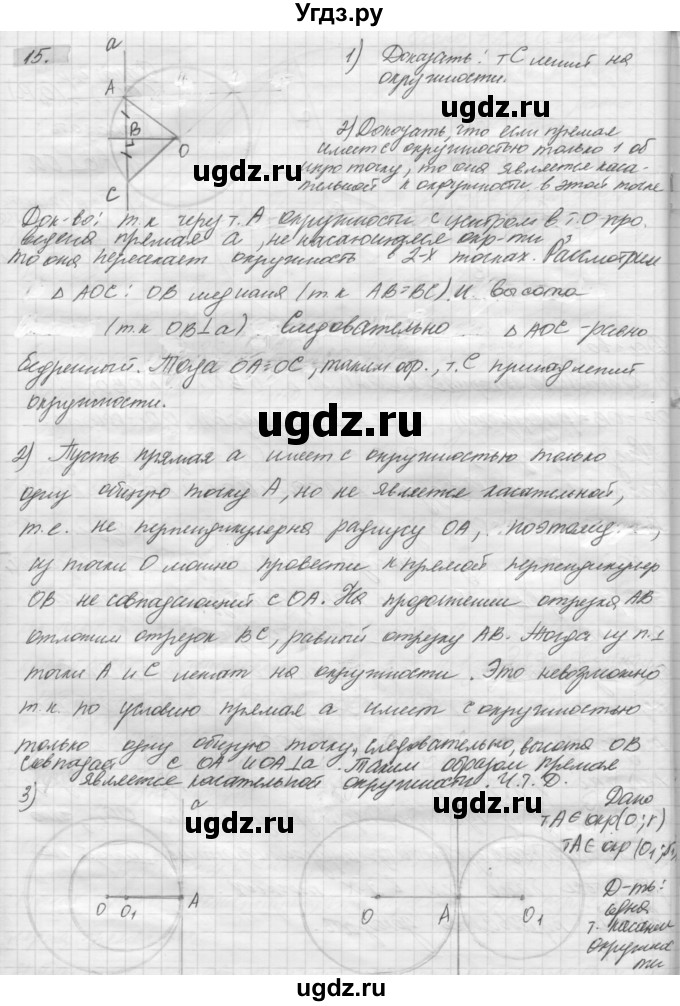 Угдз.ру
15.
a
1) Доказать: т С лежит на
окружности.
A
B
O
C
2) Доказать, что если прямая
имеет с окружностью только 1 об
щую точку, то она является каса-
тельной к окружности в этой точке
Док-во: т.к через т. А окружности с центром в т. О про-
ведена прямая а, не касающаяся окр-ти,
то она пересекает окружность в 2-х точках. Рассмотрим
△ AOC: OB медиана (т.к AB=BC) и высота
(т.к OB⊥a). Следовательно △ AOC - равно
бедренный. Тогда OA=OC, таким обр., т. С принадлежит
окружности.
uqdz.ru
2) Пусть прямая а имеет с окружностью только
одну общую точку А, но не является касательной,
т.е. не перпендикулярна радиусу OA, поэтому
из точки О можно провести к прямой перпендикуляр
OB не совпадающий с OA. На продолжении отрезка AB
отложим отрезок BC, равный отрезку AB. Тогда из п.1
точки А и С лежат на окружности. Это невозможно
т.к. по условию прямая а имеет с окружностью
только одну общую точку, следовательно, высота OB
совпадает с OA и OA⊥a. Таким образом прямая
является касательной окружности. Ч.Т.Д.
3)
a
Дано
тА∈окр(O;r)
тА∈окр(O₁;r₁
Д-ть:
одна
т. касания
окружнос
ти
O O₁ A
O A O₁
uqdz.ru
uqdz.ru
Угдз.ру